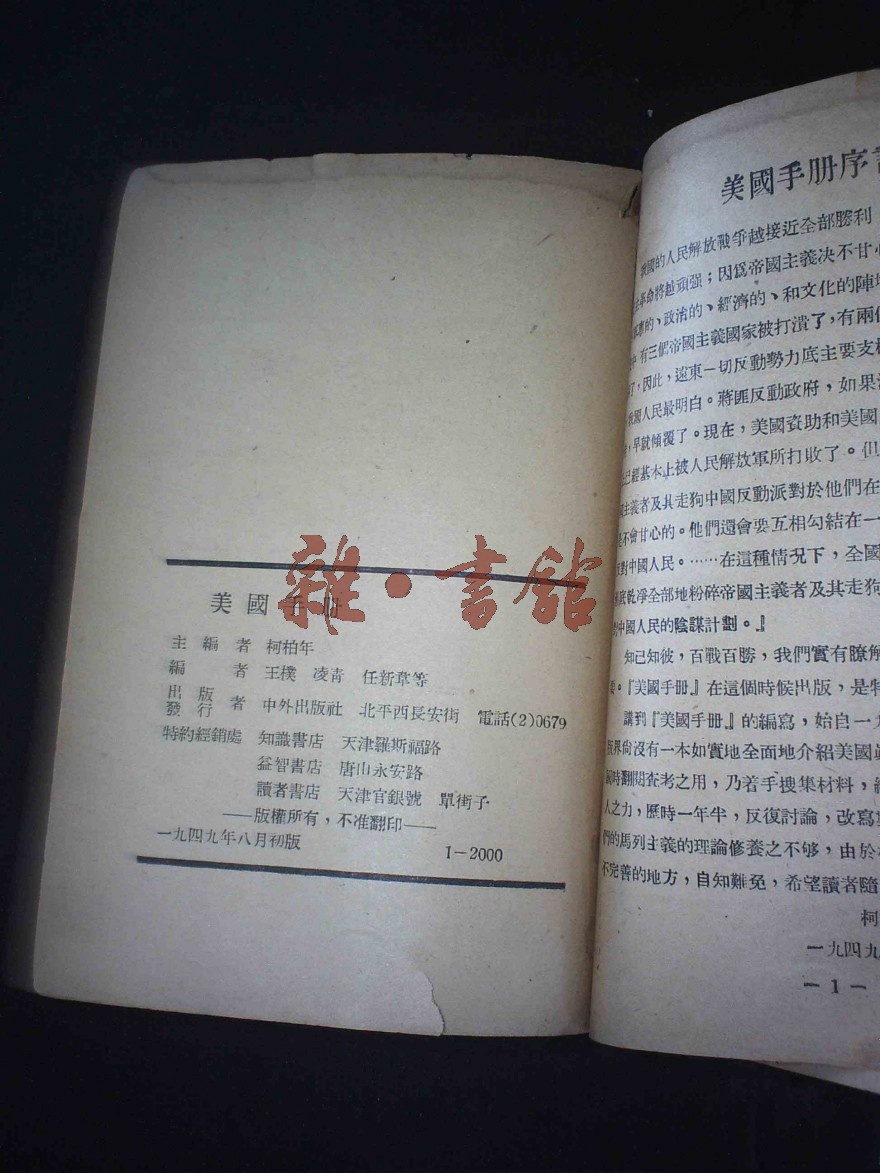 美國手册
主編者 柯柏年
編者 王樸 凌青 任新章等
出版發行者 中外出版社 北平西長安街 電話(2)0679
特約經銷處 知識書店 天津羅斯福路
益智書店 唐山永安路
讀者書店 天津官銀號 單街子
——版權所有，不准翻印——
一九四九年八月初版 1—2000
雜·書館
美國手册序
我國的人民解放戰爭越接近全部勝利，
革命將越頑强；因爲帝國主義决不甘心
的、政治的、經濟的、和文化的陣
有三個帝國主義國家被打潰了，有兩
了，因此，遠東一切反動勢力底主要支
我國人民最明白。蔣匪反動政府，如果
，早就傾覆了。現在，美國資助和美國
已經基本上被人民解放軍所打敗了。但
國主義者及其走狗中國反動派對於他們在
是不會甘心的。他們還會要互相勾結在一
反對中國人民。……在這種情况下，全國
底乾凈全部地粉碎帝國主義者及其走狗
中國人民的陰謀計劃。』
知已知彼，百戰百勝，我們實有瞭解
要。『美國手册』在這個時候出版，是特
講到『美國手册』的編寫，始自一九
界尙沒有一本如實地全面地介紹美國
時翻閱查考之用，乃着手搜集材料，
人之力，歷時一年半，反復討論，改寫
們的馬列主義的理論修養之不够，由於
不完善的地方，自知難免，希望讀者隨
柯
一九四九
— 1 —